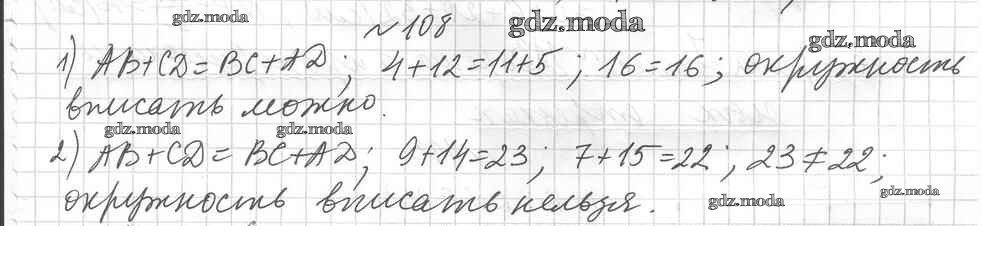 gdz.moda
№108
gdz.moda
gdz.moda
1) AB+CD=BC+AD; 4+12=11+5; 16=16; окружность
вписать можно.
gdz.moda gdz.moda
2) AB+CD=BC+AD; 9+14=23; 7+15=22; 23≠22;
gdz.moda
окружность вписать нельзя.
gdz.moda